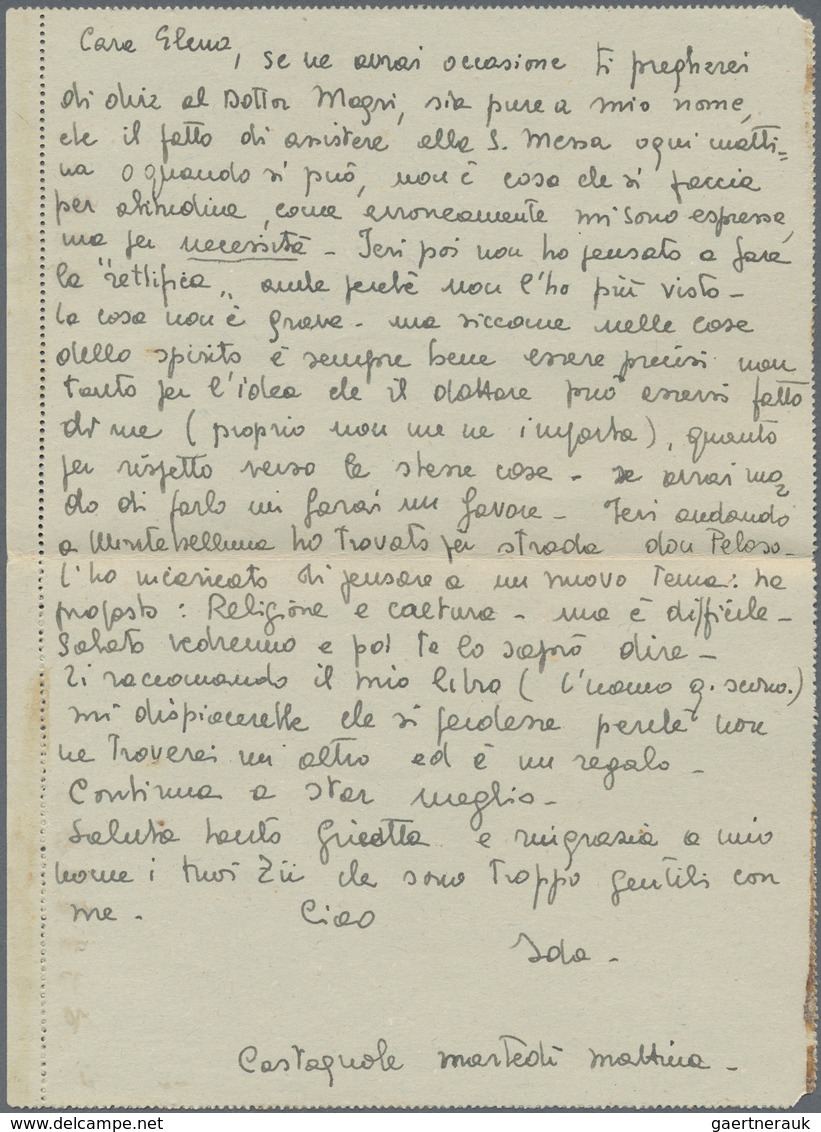 Cara Elena, se ne avrai occasione ti pregherei
di dire al Dottor Magri, sia pure a mio nome,
che il fatto di assistere alla S. Messa ogni matti=
na o quando si può, non è cosa che si faccia
per abitudine, come erroneamente mi sono espressa,
ma per necessità - Ieri poi non ho pensato a fare
la "rettifica" anche perchè non l'ho più visto -
la cosa non è grave - ma siccome nelle cose
dello spirito è sempre bene essere precisi non
tanto per l'idea che il dottore può essersi fatto
di me (proprio non me ne importa), quanto
per rispetto verso le stesse cose - se avrai mo=
do di farlo mi farai un favore - Ieri andando
a Montebelluna ho trovato per strada don Peloso -
l'ho incaricato di pensare a un nuovo tema: ha
proposto: Religione e cultura - ma è difficile -
Sabato vedremo e poi te lo saprò dire -
Ti raccomando il mio libro (l'uomo q. scono.)
mi dispiacerebbe che si perdesse perchè non
ne troverei un altro ed è un regalo -
Continua a star meglio -
Saluta tanto e ringrazia a mio
nome i tuoi Zii che sono troppo gentili con
me - Ciao
Ida -
Castagnole martedì mattina -
gaertnerauk